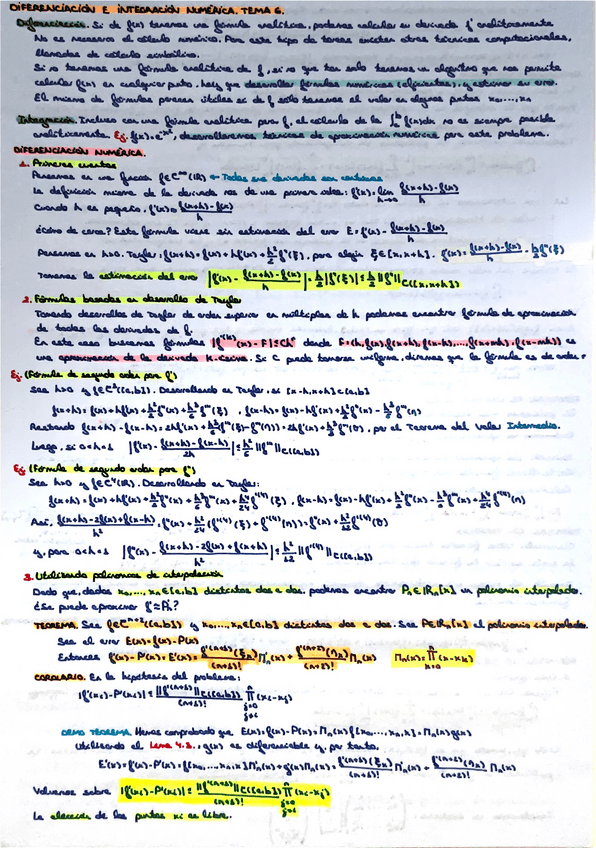 DIFERENCIACIÓN E INTEGRACIÓN NUMÉRICA. TEMA 6.
Diferenciación. Si de f(x) tenemos una fórmula analítica, podemos calcular su derivada f' analíticamente
No es necesario el cálculo numérico. Para este tipo de tareas existen otras técnicas computacionales,
llamadas de cálculo simbólico.
Si no tenemos una fórmula analítica de f, si no que tan solo tenemos un algoritmo que nos permite
calcular f(x) en cualquier punto, hay que desarrollar fórmulas numéricas (eficientes), y estimar su error.
El mismo de fórmulas parecen útiles si de f sólo tenemos el valor en algunos puntos x₀,...,xₙ
Integración. Incluso con una fórmula analítica para f, el cálculo de la ∫ₐᵇ f(x)dx no es siempre posible
analíticamente. Ej: f(x)=e^(-x²), desarrollaremos técnicas de aproximación numérica para este problema.
DIFERENCIACIÓN NUMÉRICA.
1. Primeras cuentas
Pensemos en una función f∈C^∞(ℝ) ← Todas sus derivadas son continuas
La definición misma de la derivada nos da una primera idea: f'(x)= lim h→0 (f(x+h)-f(x))/h
Cuando h es pequeño, f'(x)≈ (f(x+h)-f(x))/h
¿Cómo de cerca? Esta fórmula viene sin estimación del error E=f'(x) - (f(x+h)-f(x))/h
Pensemos en h>0. Taylor: f(x+h)=f(x)+hf'(x)+h²/2 f''(ξ), para algún ξ∈[x,x+h]. f'(x)= (f(x+h)-f(x))/h - h/2 f''(ξ)
Tenemos la estimación del error |f'(x) - (f(x+h)-f(x))/h| = h/2 |f''(ξ)| ≤ h/2 ||f''||C([x,x+h])
2. Fórmulas basadas en desarrollo de Taylor
Tomando desarrollos de Taylor de orden superior en múltiplos de h podemos encontrar fórmula de aproximación
de todas las derivadas de f.
En este caso buscamos fórmulas |f^(k)(x) - F| ≤ Ch^r donde F=(h, f(x), f(x+h), f(x-h),...,f(x+mh), f(x-mh)) es
una aproximación de la derivada k-ésima. Si C puede tomarse uniforme, diremos que la fórmula es de orden r
Ej. (Fórmula de segundo orden por f')
Sea h>0 y f∈C³([a,b]). Desarrollando en Taylor, si [x-h,x+h]⊂[a,b]
f(x+h)=f(x)+hf'(x)+h²/2 f''(x)+h³/6 f'''(ξ), f(x-h)=f(x)-hf'(x)+h²/2 f''(x)-h³/6 f'''(η)
Restando f(x+h)-f(x-h)=2hf'(x)+h³/6(f'''(ξ)-f'''(η))=2hf'(x)+h³/3 f'''(θ), por el Teorema del Valor Intermedio.
Luego, si 0<h<1 |f'(x) - (f(x+h)-f(x-h))/2h| ≤ h²/6 ||f'''||C([a,b])
Ej. (Fórmula de segundo orden por f'')
Sea h>0 y f∈C⁴(ℝ). Desarrollando en Taylor:
f(x+h)=f(x)+hf'(x)+h²/2 f''(x)+h³/6 f'''(x)+h⁴/24 f^(4)(ξ), f(x-h)=f(x)-hf'(x)+h²/2 f''(x)-h³/6 f'''(x)+h⁴/24 f^(4)(η)
Así, (f(x+h)-2f(x)+f(x-h))/h² = f''(x)+h²/24 (f^(4)(ξ)+f^(4)(η))=f''(x)+h²/12 f^(4)(θ)
y, para 0<h<1 |f''(x) - (f(x+h)-2f(x)+f(x-h))/h²| ≤ h²/12 ||f^(4)||C([a,b])
3. Utilizando polinomios de interpolación
Dado que, dados x₀,...,xₙ∈[a,b] distintos dos a dos, podemos encontrar Pₙ∈ℝₙ[x] un polinomio interpolador.
¿Se puede aproximar f'≈P'ₙ?
TEOREMA. Sea f∈C^(n+2)([a,b]) y x₀,...,xₙ∈[a,b] distintos dos a dos. Sea P∈ℝₙ[x] el polinomio interpolador.
Sea el error E(x)=f(x)-P(x)
Entonces f'(x)-P'(x)=E'(x)= f^(n+1)(ξₓ)/(n+1)! Π'ₙ(x) + f^(n+2)(ηₓ)/(n+2)! Πₙ(x) Πₙ(x)=∏ₖ₌₀ⁿ(x-xₖ)
COROLARIO. En la hipótesis del problema:
|f'(xᵢ)-P'(xᵢ)| ≤ ||f^(n+1)||C([a,b])/(n+1)! ∏ⁿ j=0 j≠i |xᵢ-xⱼ|
DEMO TEOREMA. Hemos comprobado que E(x)=f(x)-P(x)=Πₙ(x)f[x₀,...,xₙ,x]=Πₙ(x)g(x)
Utilizando el Lema 4.3., g(x) es diferenciable y, por tanto,
E'(x)=f'(x)-P'(x)=f[x₀,...,xₙ,x]Π'ₙ(x)+g'(x)Πₙ(x)= f^(n+1)(ξₓ)/(n+1)! Π'ₙ(x) + f^(n+2)(ηₓ)/(n+2)! Πₙ(x)
Volvamos sobre |f'(xᵢ)-P'(xᵢ)| ≤ ||f^(n+1)||C([a,b])/(n+1)! ∏ⁿ j=0 j≠i |xᵢ-xⱼ|
La elección de los puntos xᵢ es libre.